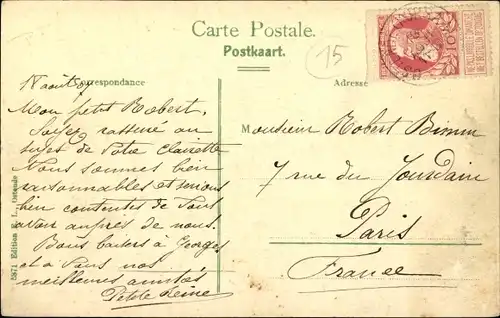 Carte Postale.
Postkaart.
15
Correspondance
Adresse
18 août 07
Mon petit Robert.
Soyez rassuré au
sujet de votre Clairette
Nous sommes bien
raisonnables et serions
bien contentes de vous
avoir auprès de nous.
Bons baisers à Georges
et à vous nos
meilleures amitiés
Petite Reine
Monsieur Robert Bimm
7 rue du Jourdain
Paris
France
1871 Edition E. L., Ostende